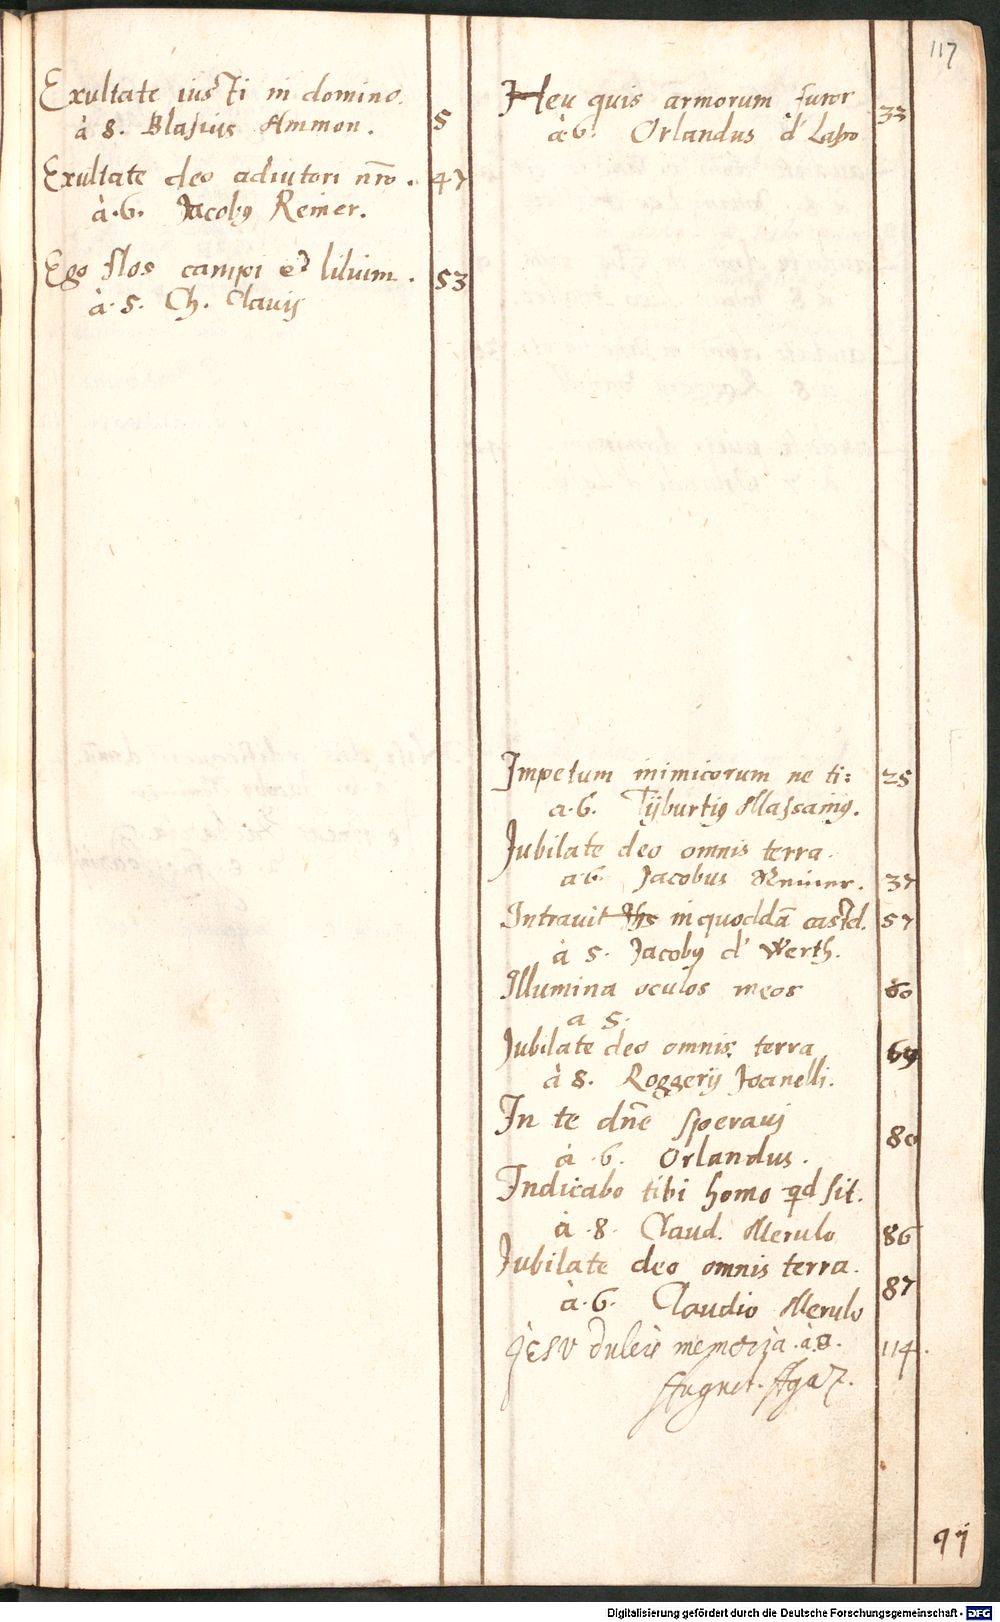 117
Exultate iusti in domino.
à 8. Blasius Ammon. 5
Exultate deo adiutori nr̃o. 47
à.6. Jacobꝰ Reiner.
Ego flos campi et lilium. 53
à.5. Ch. Clavij
Heu quis armorum furor 33
à 6. Orlandus d' Laßo
Impetum inimicorum ne ti: 25
a.6. Tijburtiꝰ Massainiꝰ.
Jubilate deo omnis terra.
a 6 Jacobus Reiner. 37
Intravit Ihs in quoddã castel. 57
à 5. Jacobꝰ d' Werth.
Illumina oculos meos 60
a 5.
Jubilate deo omnis terra 69
à 8. Roggerij Joanelli.
In te dñe speravi 80
à .6. Orlandus.
Indicabo tibi homo qd sit.
à .8. Claud. Merulo 86
Jubilate deo omnis terra. 87
à.6. Claudio Merulo
JESV dulcis memoria.à.8. 114.
August. Agaz.
Digitalisierung gefördert durch die Deutsche Forschungsgemeinschaft - DFG